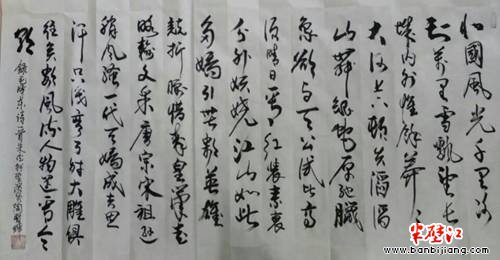 北國風光千里冰
封萬里雪飄望長
城內外惟餘莽莽
大河上下頓失滔滔
山舞銀蛇原馳臘
象欲與天公試比高
須晴日看紅裝素裹
分外妖嬈江山如此
多嬌引無數英雄
競折腰惜秦皇漢武
略輸文采唐宗宋祖遜
稍風騷一代天驕成吉思
汗只識彎弓射大雕俱
往矣數風流人物還看今
朝
錄毛澤東詩一首
半壁江
www.banbijiang.com